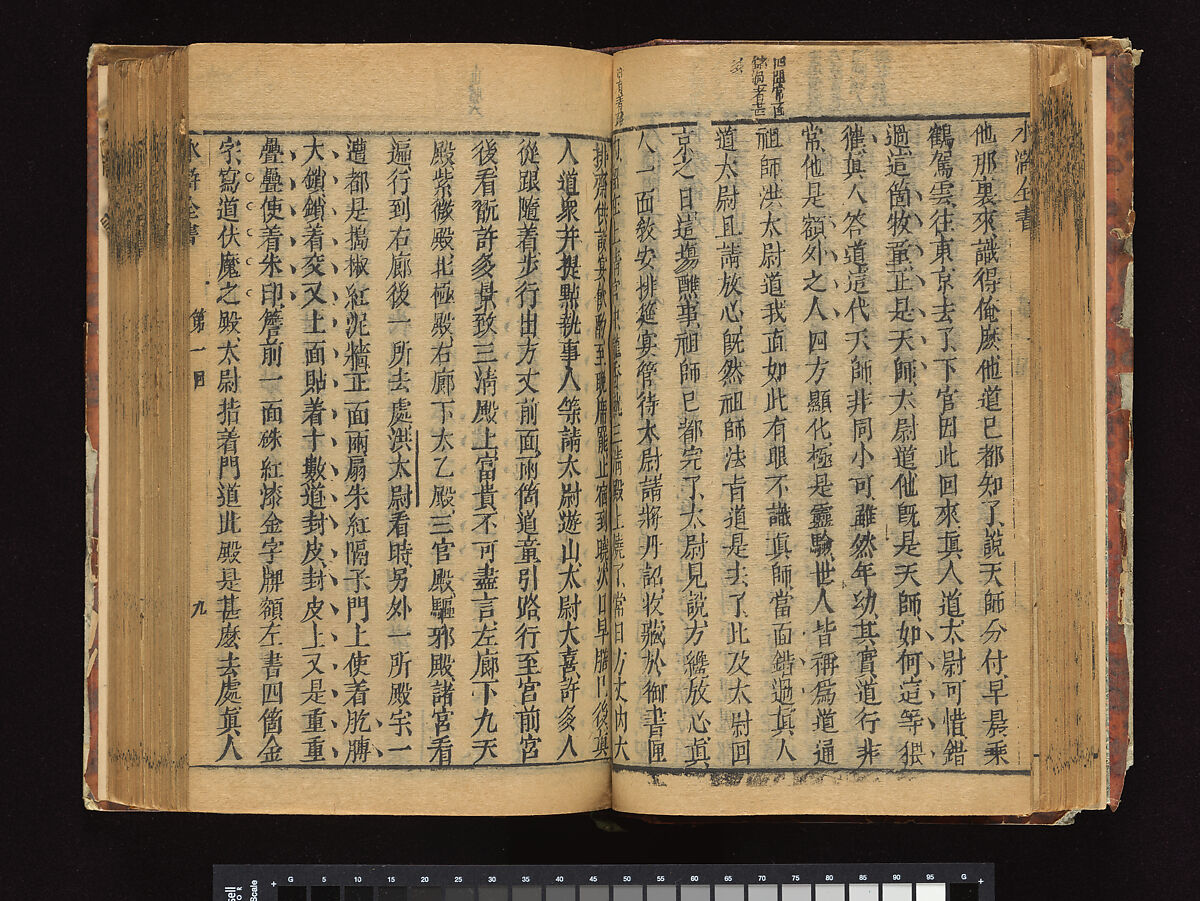 水滸全書
他那裏來識得俺麽他道已都知了說天師分付早晨乘
鶴駕雲往東京去了下官因此回來眞人道太尉可惜錯
過這箇牧童正是天師太尉道他旣是天師如何這等猥
獕眞人答道這代天師非同小可雖然年幼其實道行非
常他是額外之人四方顯化極是靈驗世人皆稱爲道通
祖師洪太尉道我直如此有眼不識眞師當面錯過眞人
道太尉且請放心旣然祖師法旨道是去了比及太尉回
京之日這塲醮事祖師已都完了太尉見說方纔放心眞
人一面敎安排筵宴管待太尉請將丹詔收藏於御書匣
上燒了當日方丈內大
排齋供設宴飮酌至晚席罷止宿到曉次日早膳已後眞
人道衆幷提點執事人等請太尉遊山太尉大喜許多人
從跟隨着步行出方丈前面兩箇道童引路行至宮前宮
後看翫許多景致三淸殿上富貴不可盡言左廊下九天
殿紫微殿北極殿右廊下太乙殿三官殿驅邪殿諸宮看
遍行到右廊後一所去處洪太尉看時另外一所殿宇一
遭都是搗椒紅泥牆正面兩扇朱紅隔子門上使着肐膊
大鎖鎖着交叉上面貼着十數道封皮封皮上又是重重
疊疊使着朱印簷前一面硃紅漆金字牌額左書四箇金
字寫道伏魔之殿太尉指着門道此殿是甚麽去處眞人
水滸全書 第一回 九
G 5 10 15 20 25 30 35 40 45 50 55 60 65 70 75 80 85 90 95 G
Scale